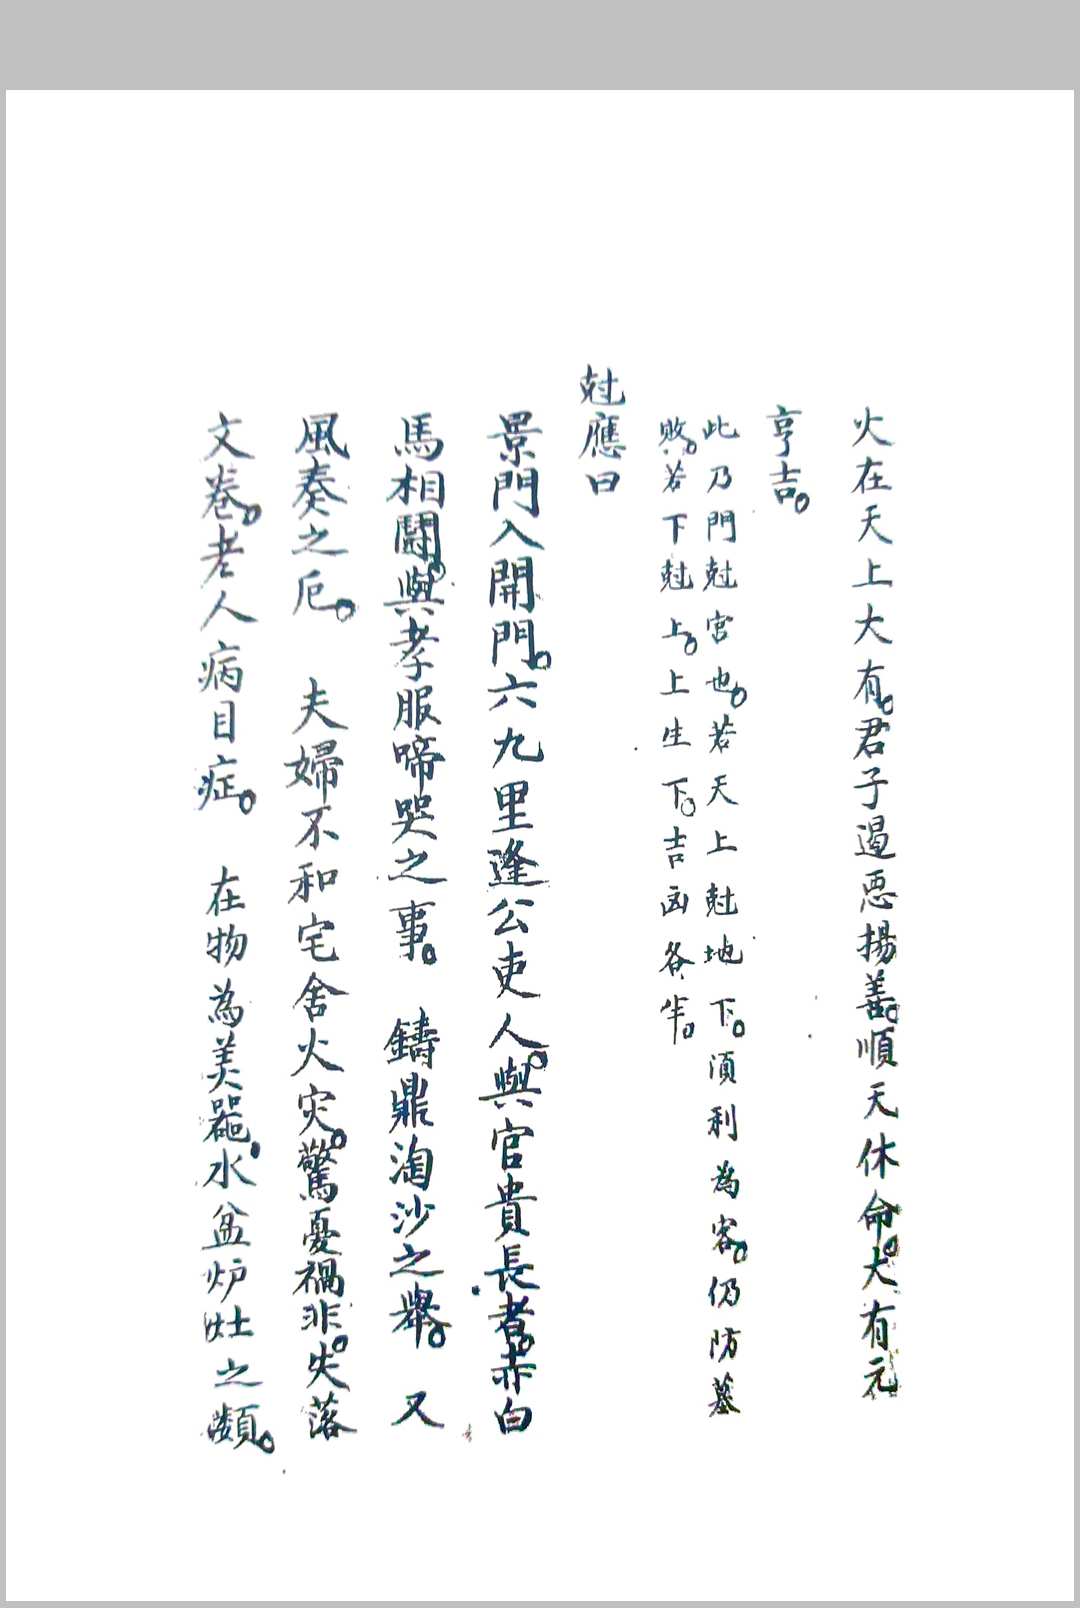 火在天上大有。君子遏悪揚善。順天休命。大有元
亨吉。
此乃門尅宮也。若天上尅地下。須利為客。仍防墓
敗。若下尅上。上生下。吉凶各半。
尅應曰
景門入開門。六九里逢公吏人。與官貴長者。赤白
馬相鬪。與孝服啼哭之事。 鑄鼎淘沙之舉。 又
風奏之厄。 夫婦不和宅舍火灾。驚憂禍非。失落
文卷。老人病目症。 在物為美器。水盆炉灶之類。